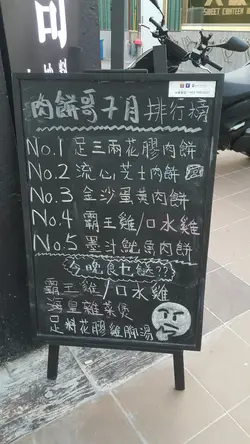 肉餅哥7月排行榜
No.1 足三兩花膠肉餅
No.2 流心芝士肉餅
No.3 金沙蛋黄肉餅
No.4 霸王雞/口水雞
No.5 墨斗魷魚肉餅
今晚食乜餸??
霸王雞/口水雞
海皇雜菜煲
足料花膠雞腳湯